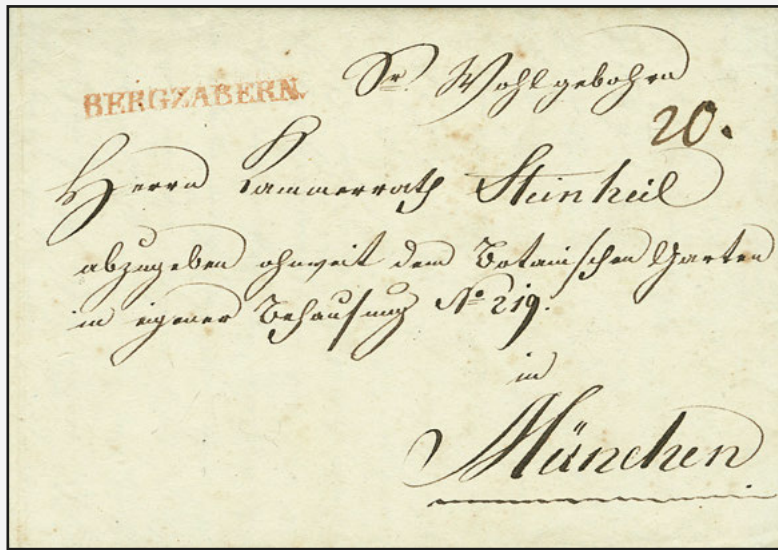 BERGZABERN.
Sr. Wohlgebohrn
20.
Herrn Kammerrath Steinheil
abzugeben ohnweit dem Botanischen Garten
in eigener Behausung No 219.
in
München